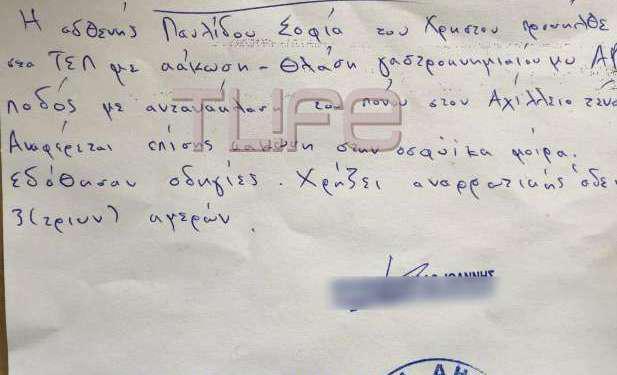 Η ασθενής Παυλίδου Σοφία του Χρήστου προσήλθε
στα ΤΕΠ με κάκωση - θλάση γαστροκνημιαίου μυ ΑΡ
ποδός με αντανάκλαση του πόνου στον Αχίλλειο τένο
TLIFE
Αναφέρεται επίσης κάκωση στην οσφυϊκή μοίρα.
Εδόθησαν οδηγίες. Χρήζει αναρρωτικής άδει
3 (τριών) ημερών.
ΙΩΑΝΝΗΣ